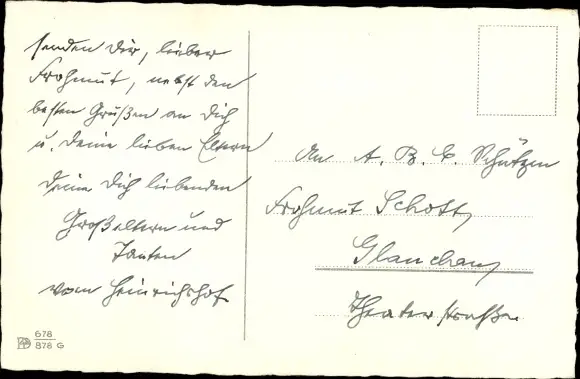 senden Dir, lieber
Frohmut, nebst den
besten Grüßen an Dich
u. Deine lieben Eltern
Deine Dich liebenden
Großeltern und
Tanten
vom Heinrichshof
678
878 G
An A. B. C. Schützen
Frohmut Schott,
Glauchau,
Theaterstraße